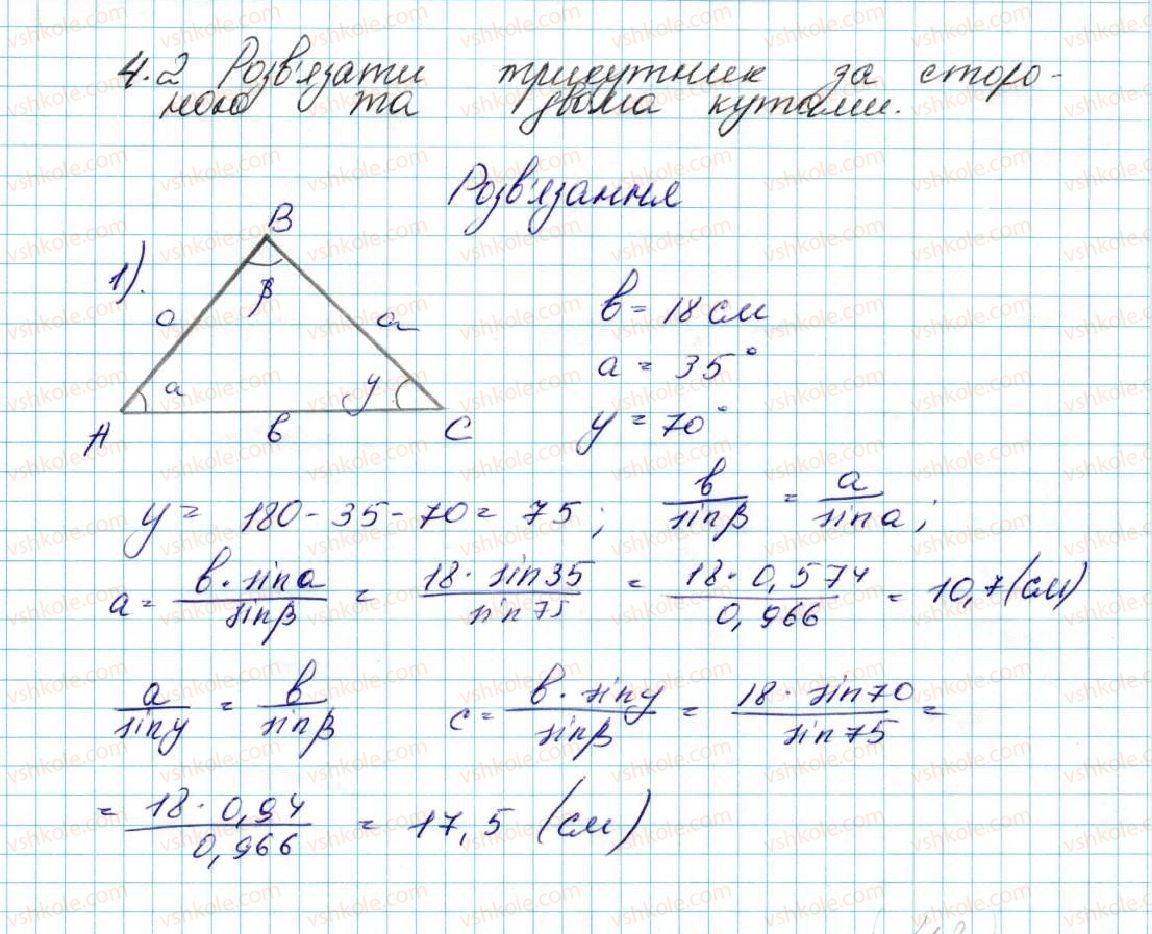 4.2 Розв'язати трикутник за сторо-
ною та двома кутами.
Розв'язання
1).
B
β
c a
α γ
A b C
b = 18 см
α = 35°
γ = 70°
y = 180 - 35 - 70 = 75; b/sinβ = a/sinα;
a = b·sinα/sinβ = 18·sin35/sin75 = 18·0,574/0,966 = 10,7(см)
a/sinγ = b/sinβ c = b·sinγ/sinβ = 18·sin70/sin75 =
= 18·0,94/0,966 = 17,5 (см)
vshkole.com